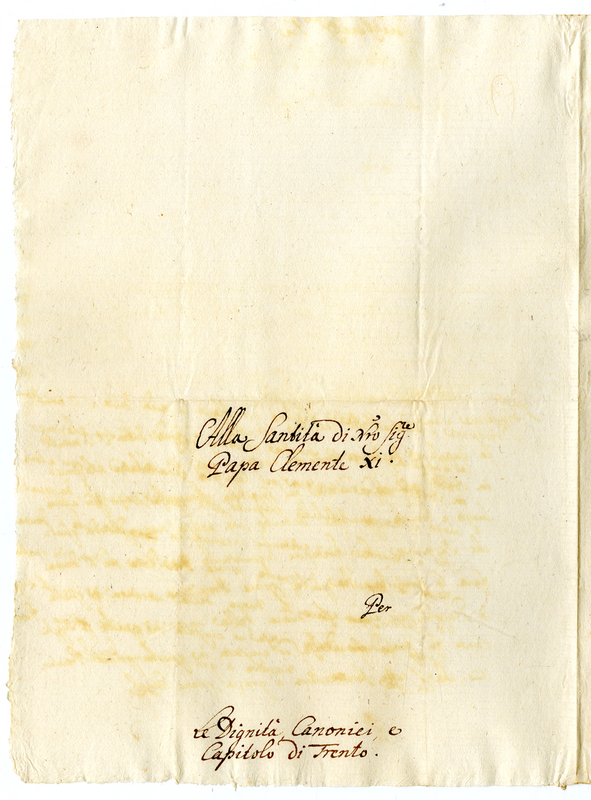 Alla Santità di Nrõ Sig.re
Papa Clemente Xi.
Per
Le Dignità, Canonici, e
Capitolo di Trento.